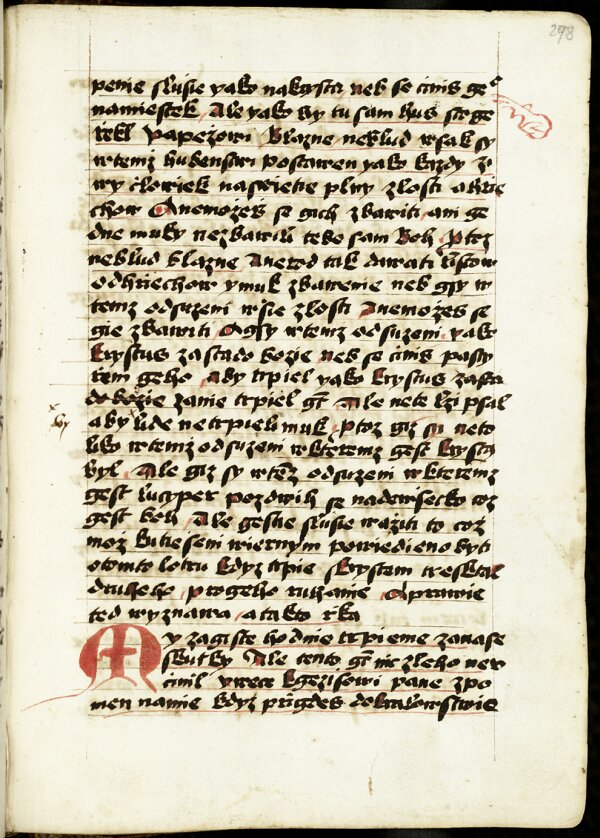 298
penie slusie yako nakrysta neb se cinis geo
namiestek Ale yako by tu sam hus stoge
rekl papezowi blazne neklud wsak sy
w temz hudenstwi postawen yako kazdy
wy clowiek naswietie plny zlosti a hrie
chow A nemozes se gich zbawiti ani ge
dne muky nezbawili tebe sam boh ptoz
neklud blazne A nerod tak dawati listow
odhriechow y muk zbawenie neb gsy w
temz odsuzeni wsie zlosti A nemozes se
gie zbawiti A gsy w temz odsuzeni yako
krystus zastado bozie neb se cinis pasty
rem geho aby trpiel yako krystus za sta
do bozie zanie trpiel gt Ale nete lzi psal
aby lide ne trpieli muk ptoz giz su neto
liko w temz odsuzeni w kteremz gest krysta
byl Ale giz sy w temz odsuzeni w kteremz
gest lucyper pozdwih se nade wsecko coz
gest boh Ale gestie slusie waziti to coz
moz kutieseni wiernym powiedieno byti
o tomto lotru kdyz trpie s krystem tresktal
druheho progeho ruhanie A prawie
ted wyznawa a takto rka
My zagiste hodnie trpieme zanase
skutky Ale tento gt nic zleho neu
cinil y wece kgezisowi pane zpo
men namie kdyz prigdes do kralowstwie